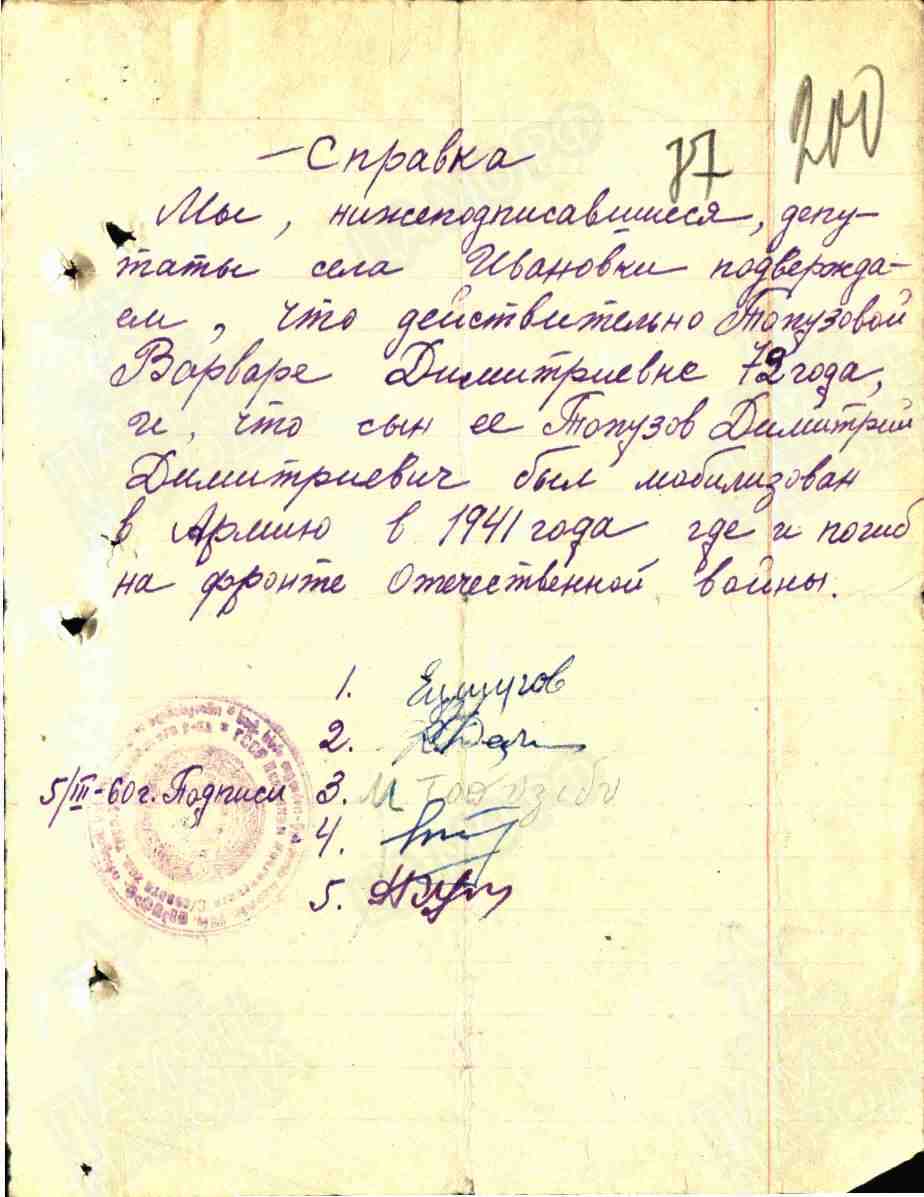 200
37
Справка
Мы, нижеподписавшиеся, депу-
таты села Ивановки подвержда-
ем, что действительно Топузовой
Варваре Димитриевне 72 года,
и, что сын ее Топузов Димитрий
Димитриевич был мобилизован
в Армию в 1941 года где и погиб
на фронте Отечественной войны.
1.
2.
5/III-60 г. Подписи 3.
4.
5.